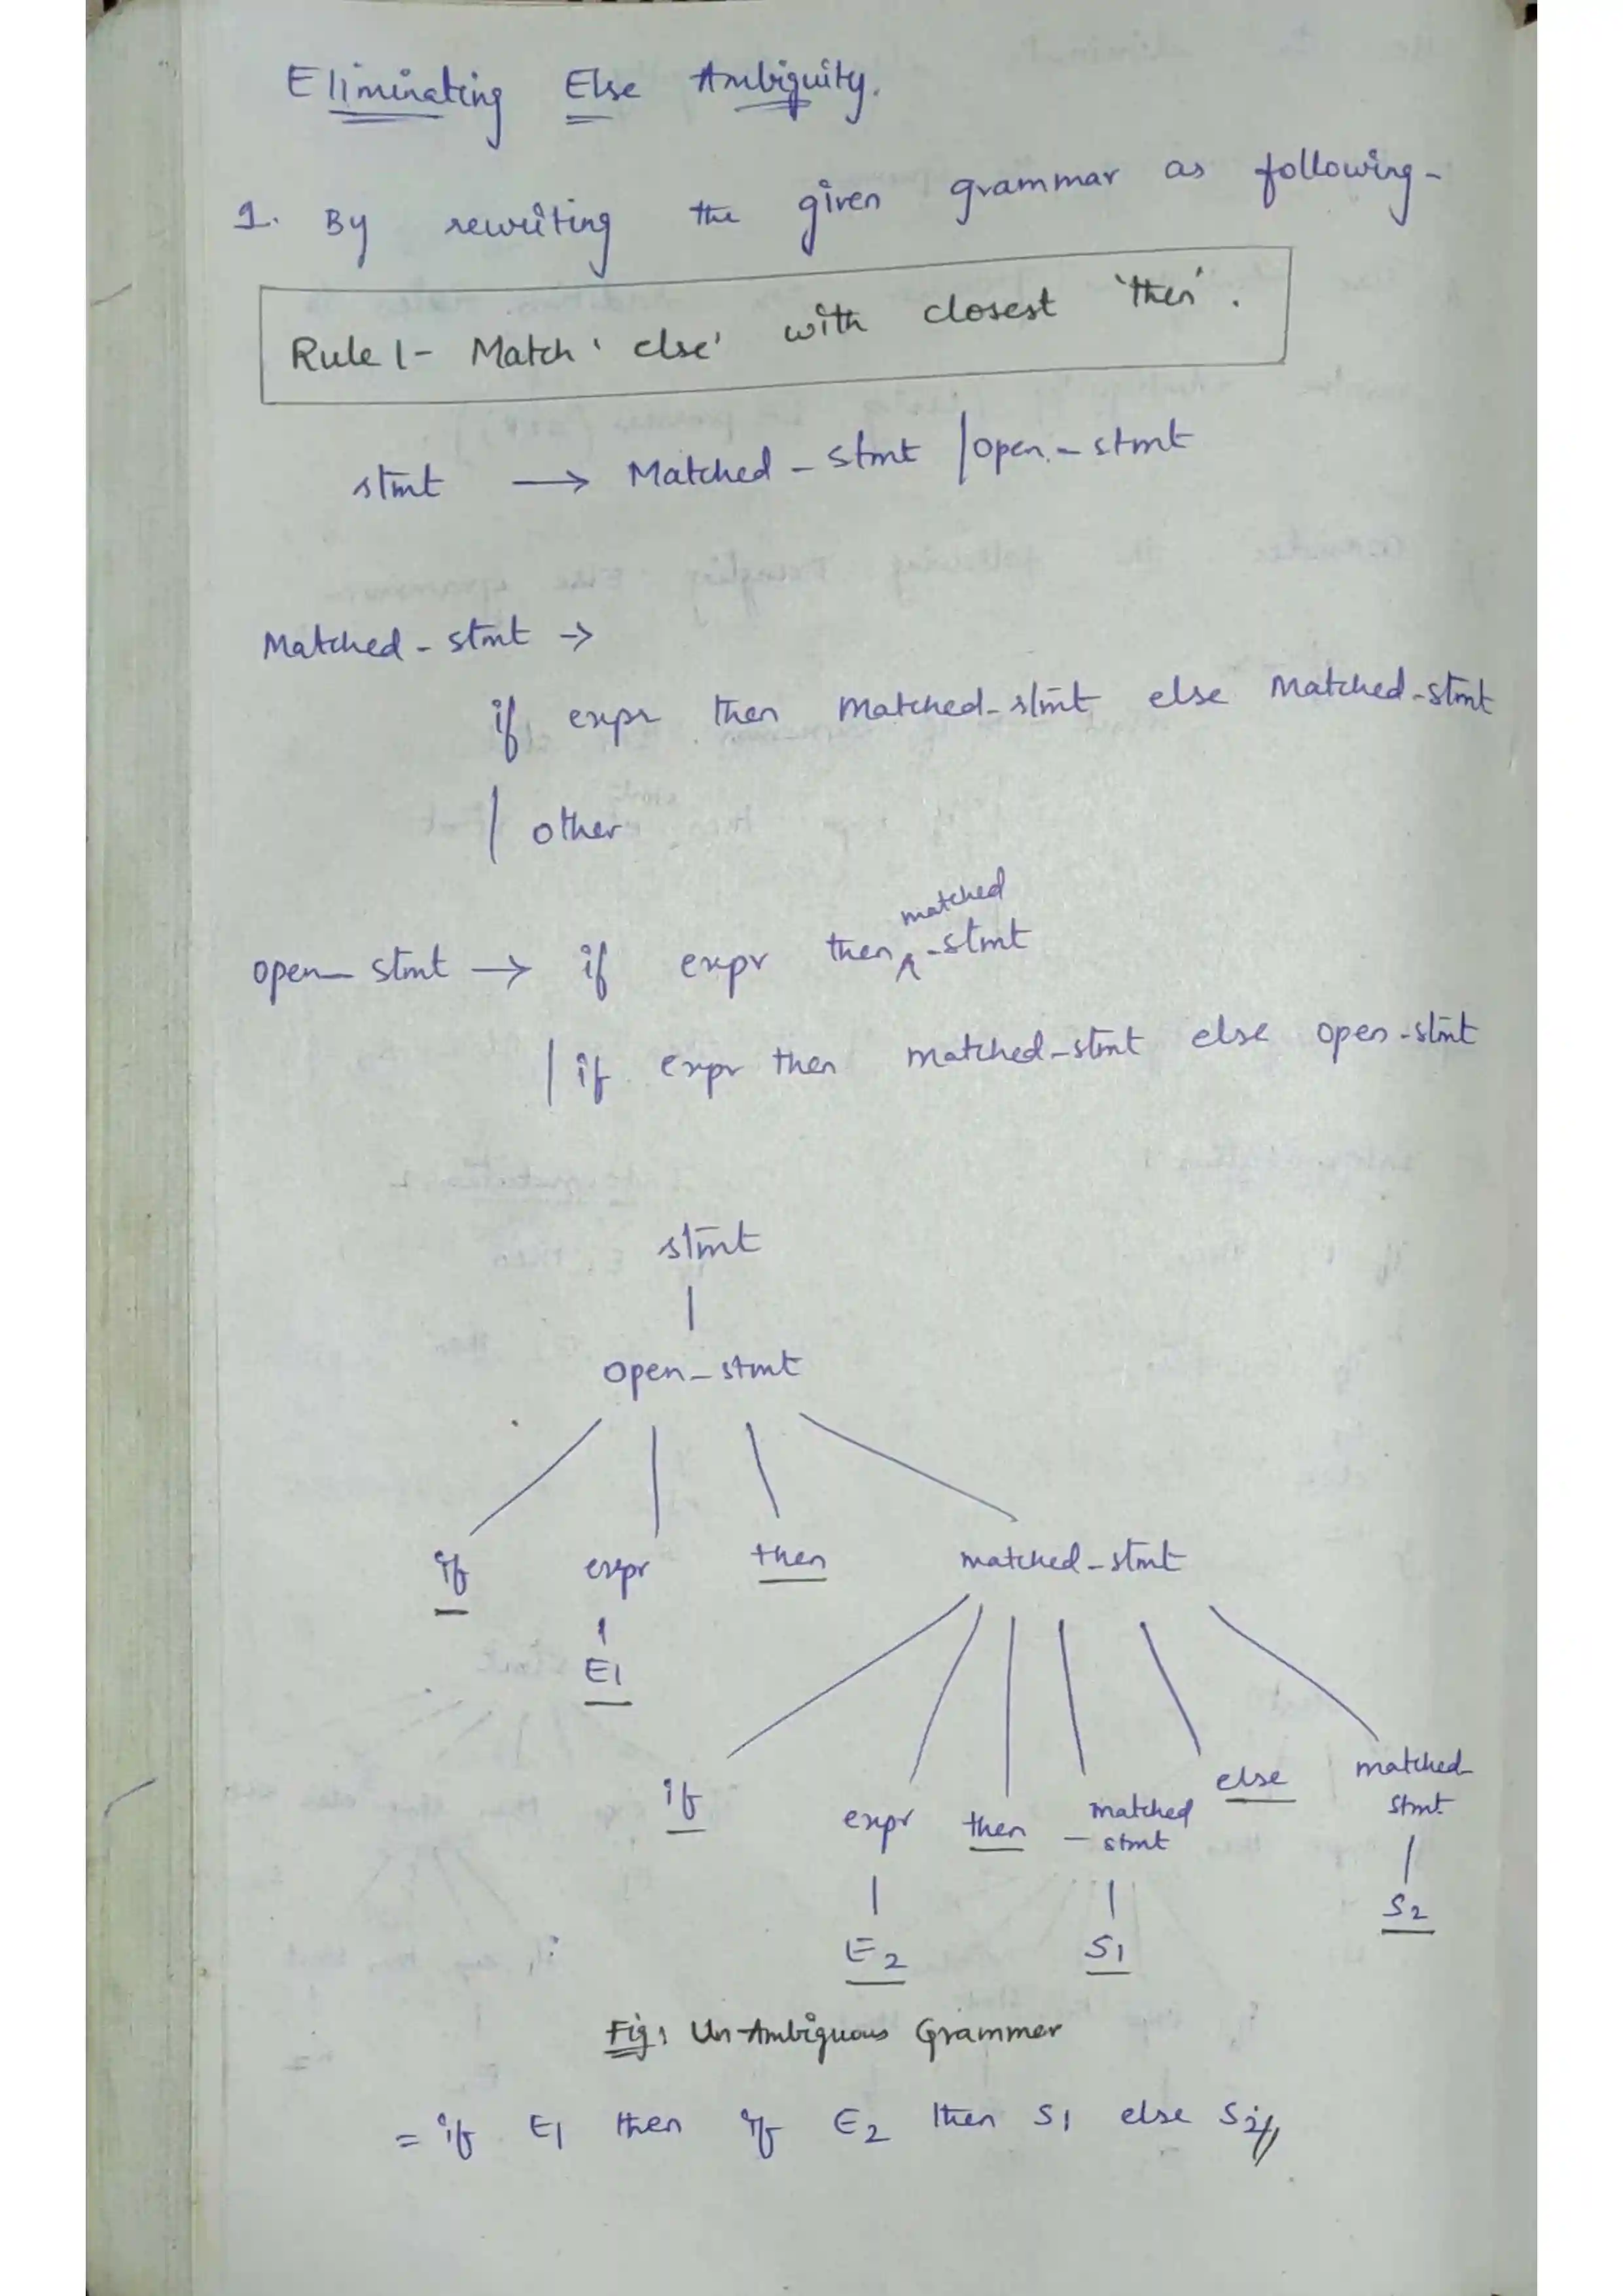 Eliminating Else Ambiguity.
1. By rewriting the given grammar as following-
Rule 1- Match 'else' with closest 'then'.
stmt → Matched-stmt | open-stmt
Matched-stmt →
if expr then Matched-stmt else Matched-stmt
| other
matched
open-stmt → if expr then ^-stmt
| if expr then matched-stmt else open-stmt
stmt
open-stmt
if expr then matched-stmt
E1
if expr then matched-stmt else matched-stmt
E2 S1 S2
Fig: Un-Ambiguous Grammer
= if E1 then if E2 then S1 else S2//